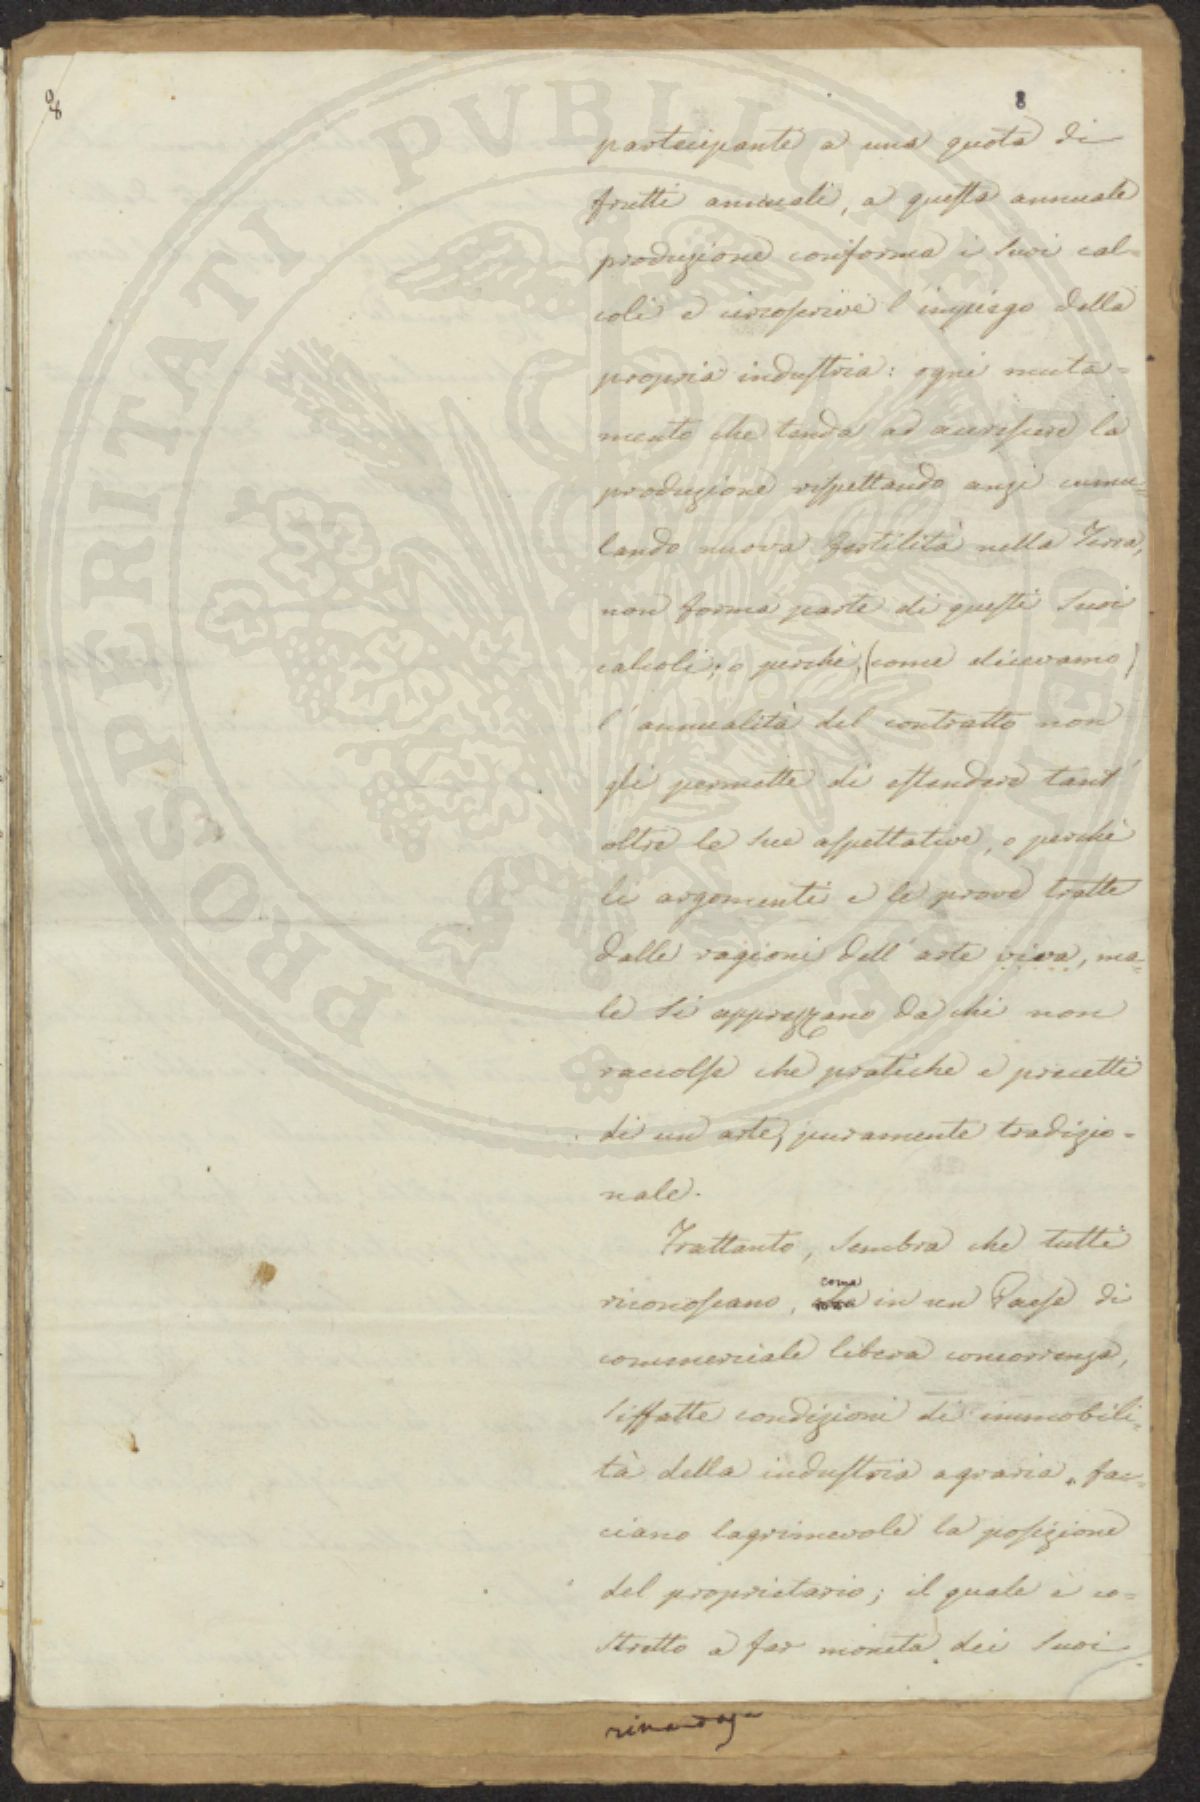 8
8
partecipante a una quota di
frutti annuali, a questa annuale
produzione conforma i suoi cal=
coli e circoscrive l'impiego della
propria industria: ogni muta=
mento che tenda ad accrescere la
produzione rispettando anzi cumu=
lando nuova fertilità nella Terra,
non forma parte di questi suoi
calcoli; o perchè, (come dicevamo)
l'annualità del contratto non
gli permette di estendere tant'
oltre le sue aspettative, o perchè
li argomenti e le prove tratte
dalle ragioni dell'arte viva, ma=
le si apprezzano da chi non
raccolse che pratiche e precetti
di un arte, puramente tradizio=
nale.
Frattanto, sembra che tutti
come
riconoscano, in un Paese di
commerciale libera concorrenza,
siffatte condizioni di immobili=
tà della industria agraria, fac=
ciano lagrimevole la posizione
del proprietario; il quale è co=
stretto a far moneta dei suoi
PROSPERITATI PUBLICAE AUGENDAE